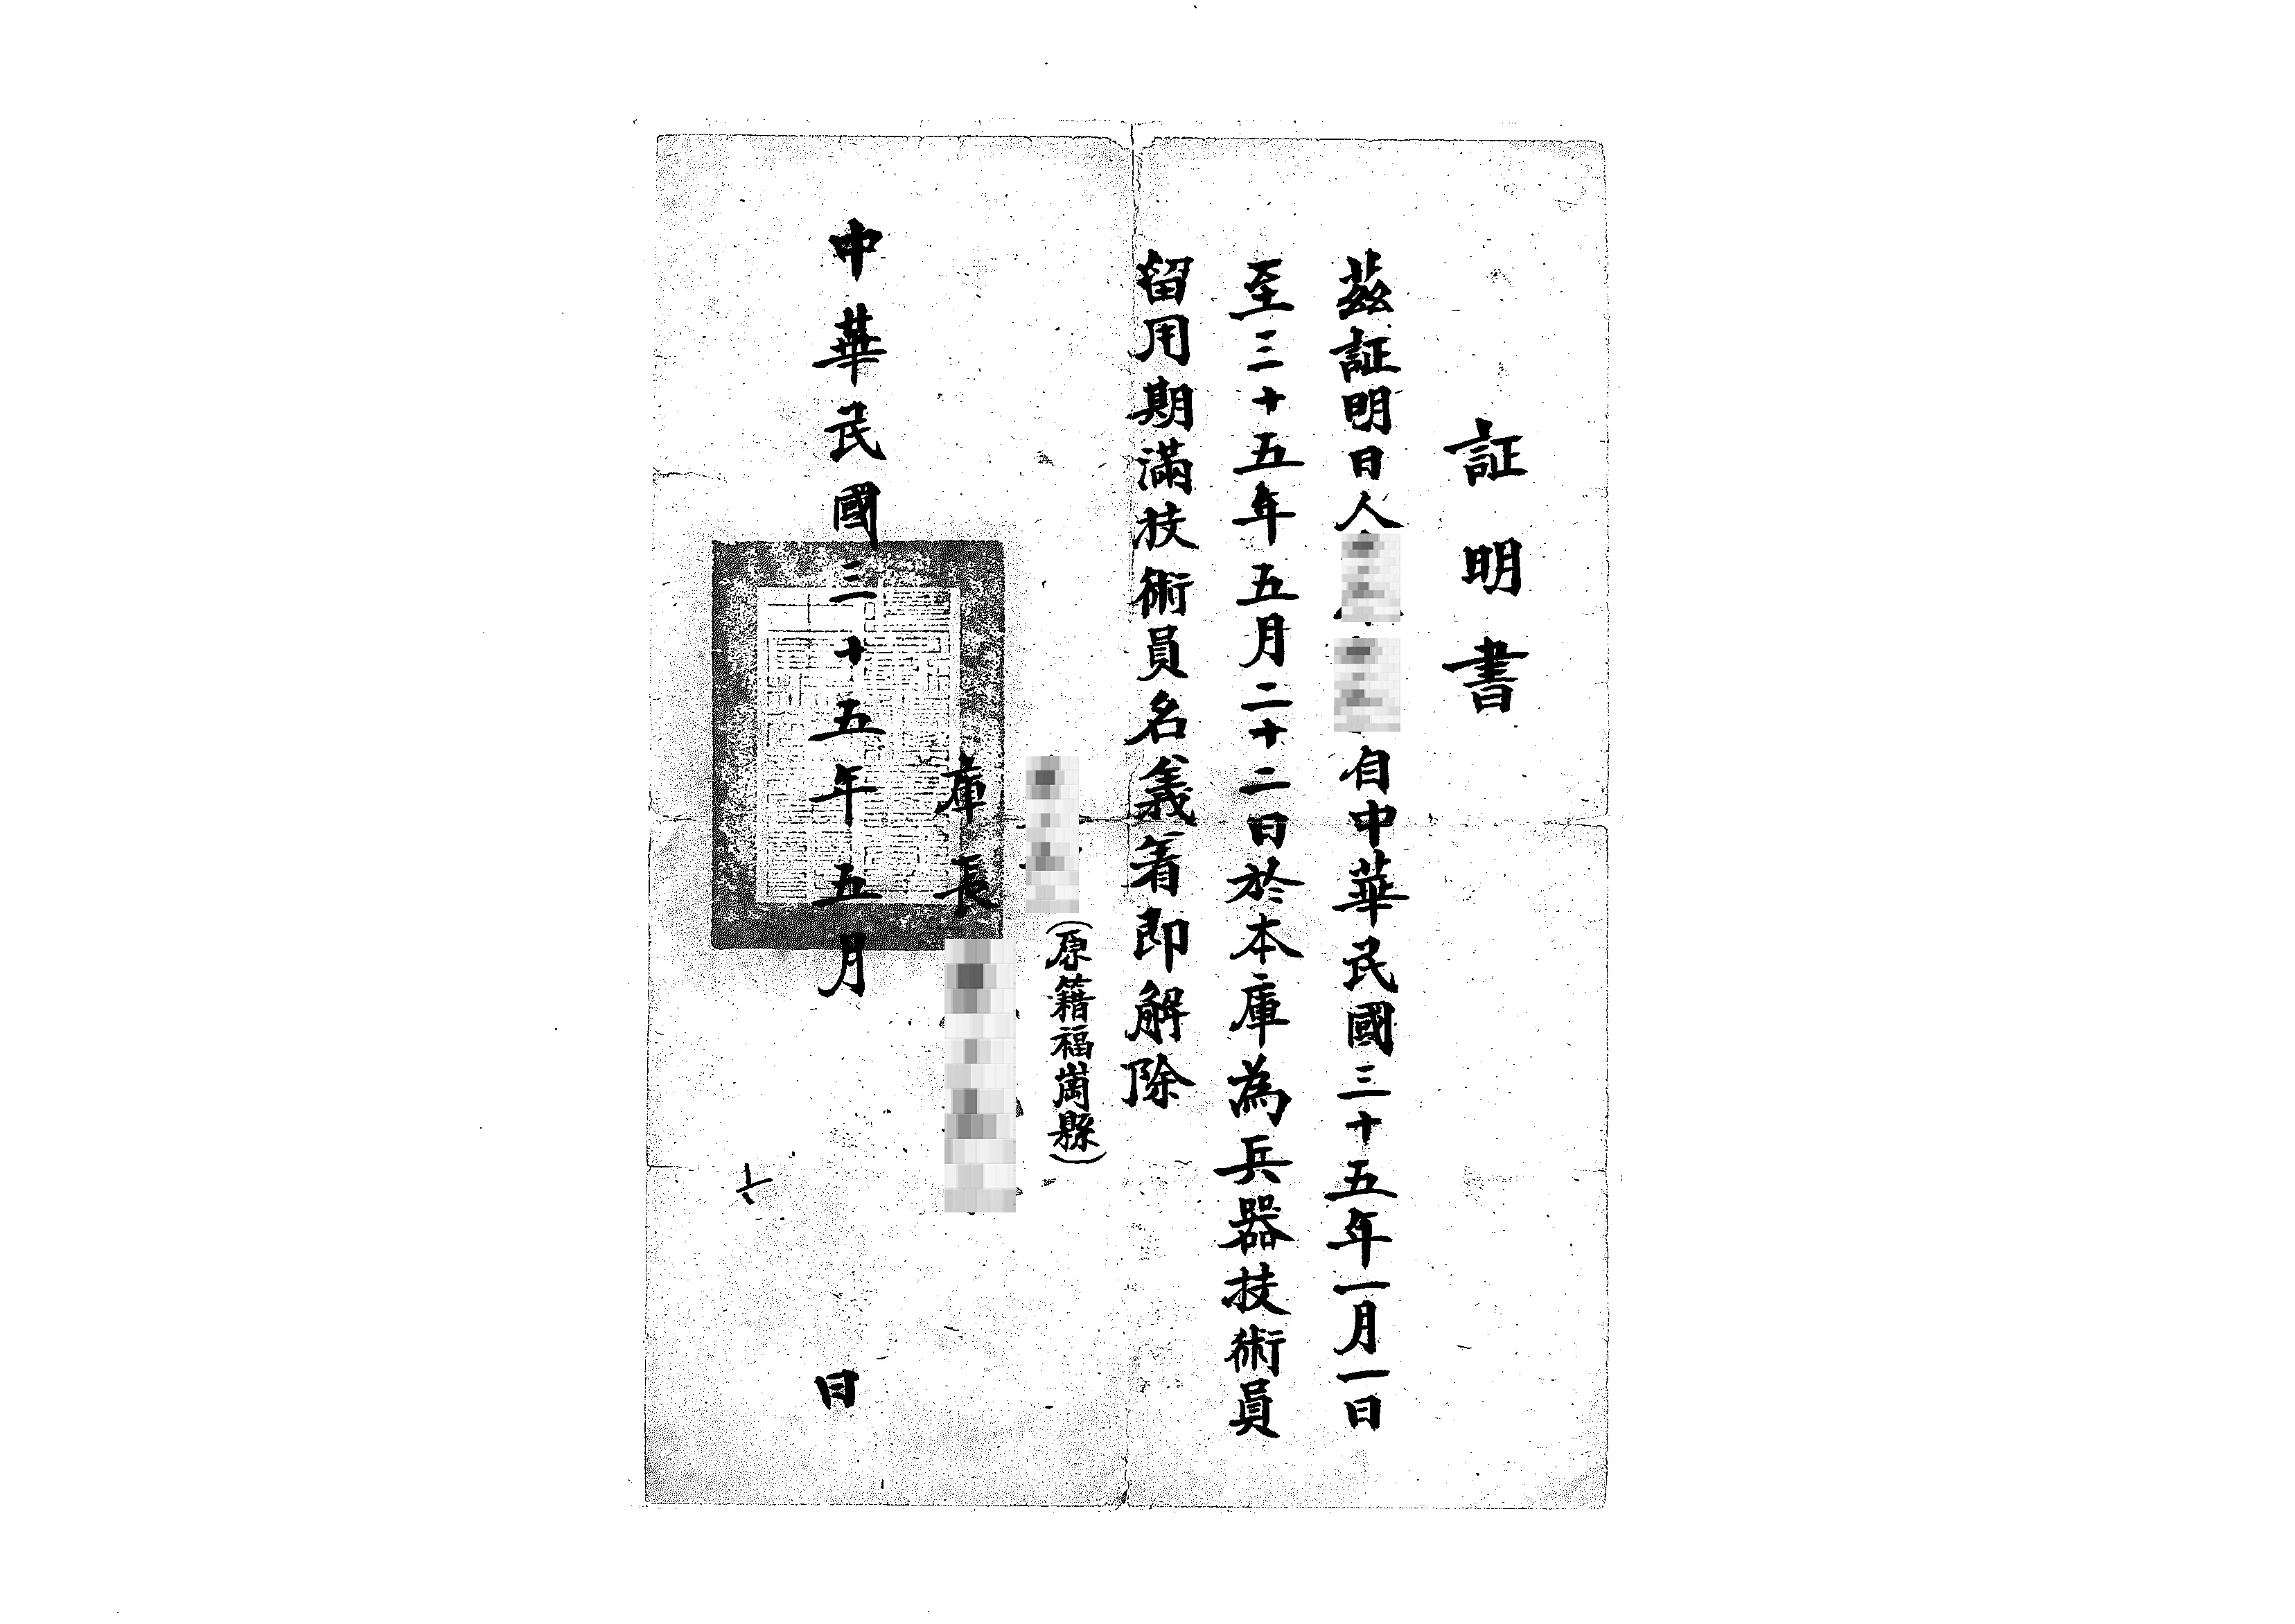 証明書
茲証明日人自中華民國三十五年一月一日
至三十五年五月二十二日於本庫為兵器技術員
留用期滿技術員名義着即解除
(原籍福崗縣)
庫長
中華民國三十五年五月 日